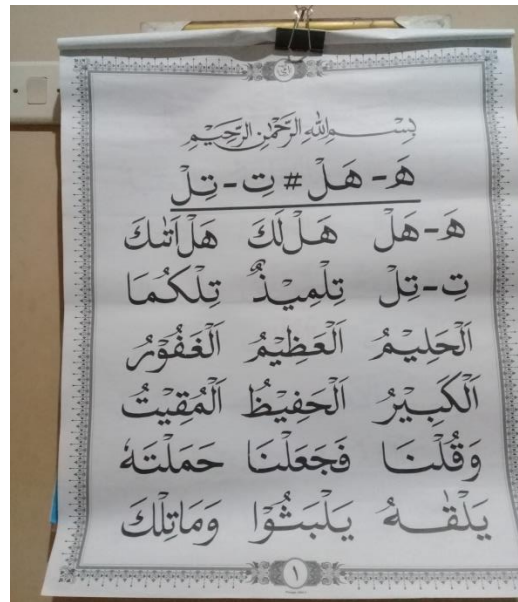 بِسْمِ اللهِ الرَّحْمٰنِ الرَّحِيْمِ
هَـ - هَلْ # تِـ - تِلْ
هَـ - هَلْ هَلْ لَكَ هَلْ اَتٰىكَ
تِـ - تِلْ تِلْمِيْذٌ تِلْكُمَا
اَلْحَلِيْمُ اَلْعَظِيْمُ اَلْغَفُوْرُ
اَلْكَبِيْرُ اَلْحَفِيْظُ اَلْمُقِيْتُ
وَقُلْنَا فَجَعَلْنَا حَمَلْتَهٗ
يَلْقٰهُ يَلْبَثُوْا وَمَاتِلْكَ
١